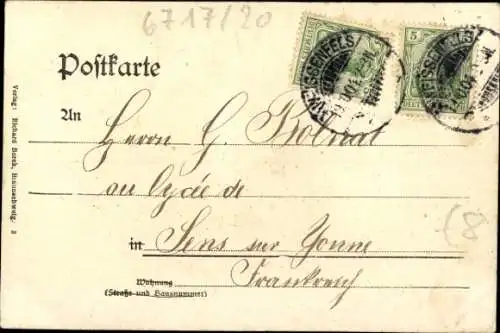 6717/20
WEISSENFELS
5
WEISSENFELS
Postkarte
An
Herrn G.
au lycée de
in Sens sur Yonne
Frankreich
Wohnung
(Straße und Hausnummer)
Verlag: Richard Borek, Braunschweig.
(8